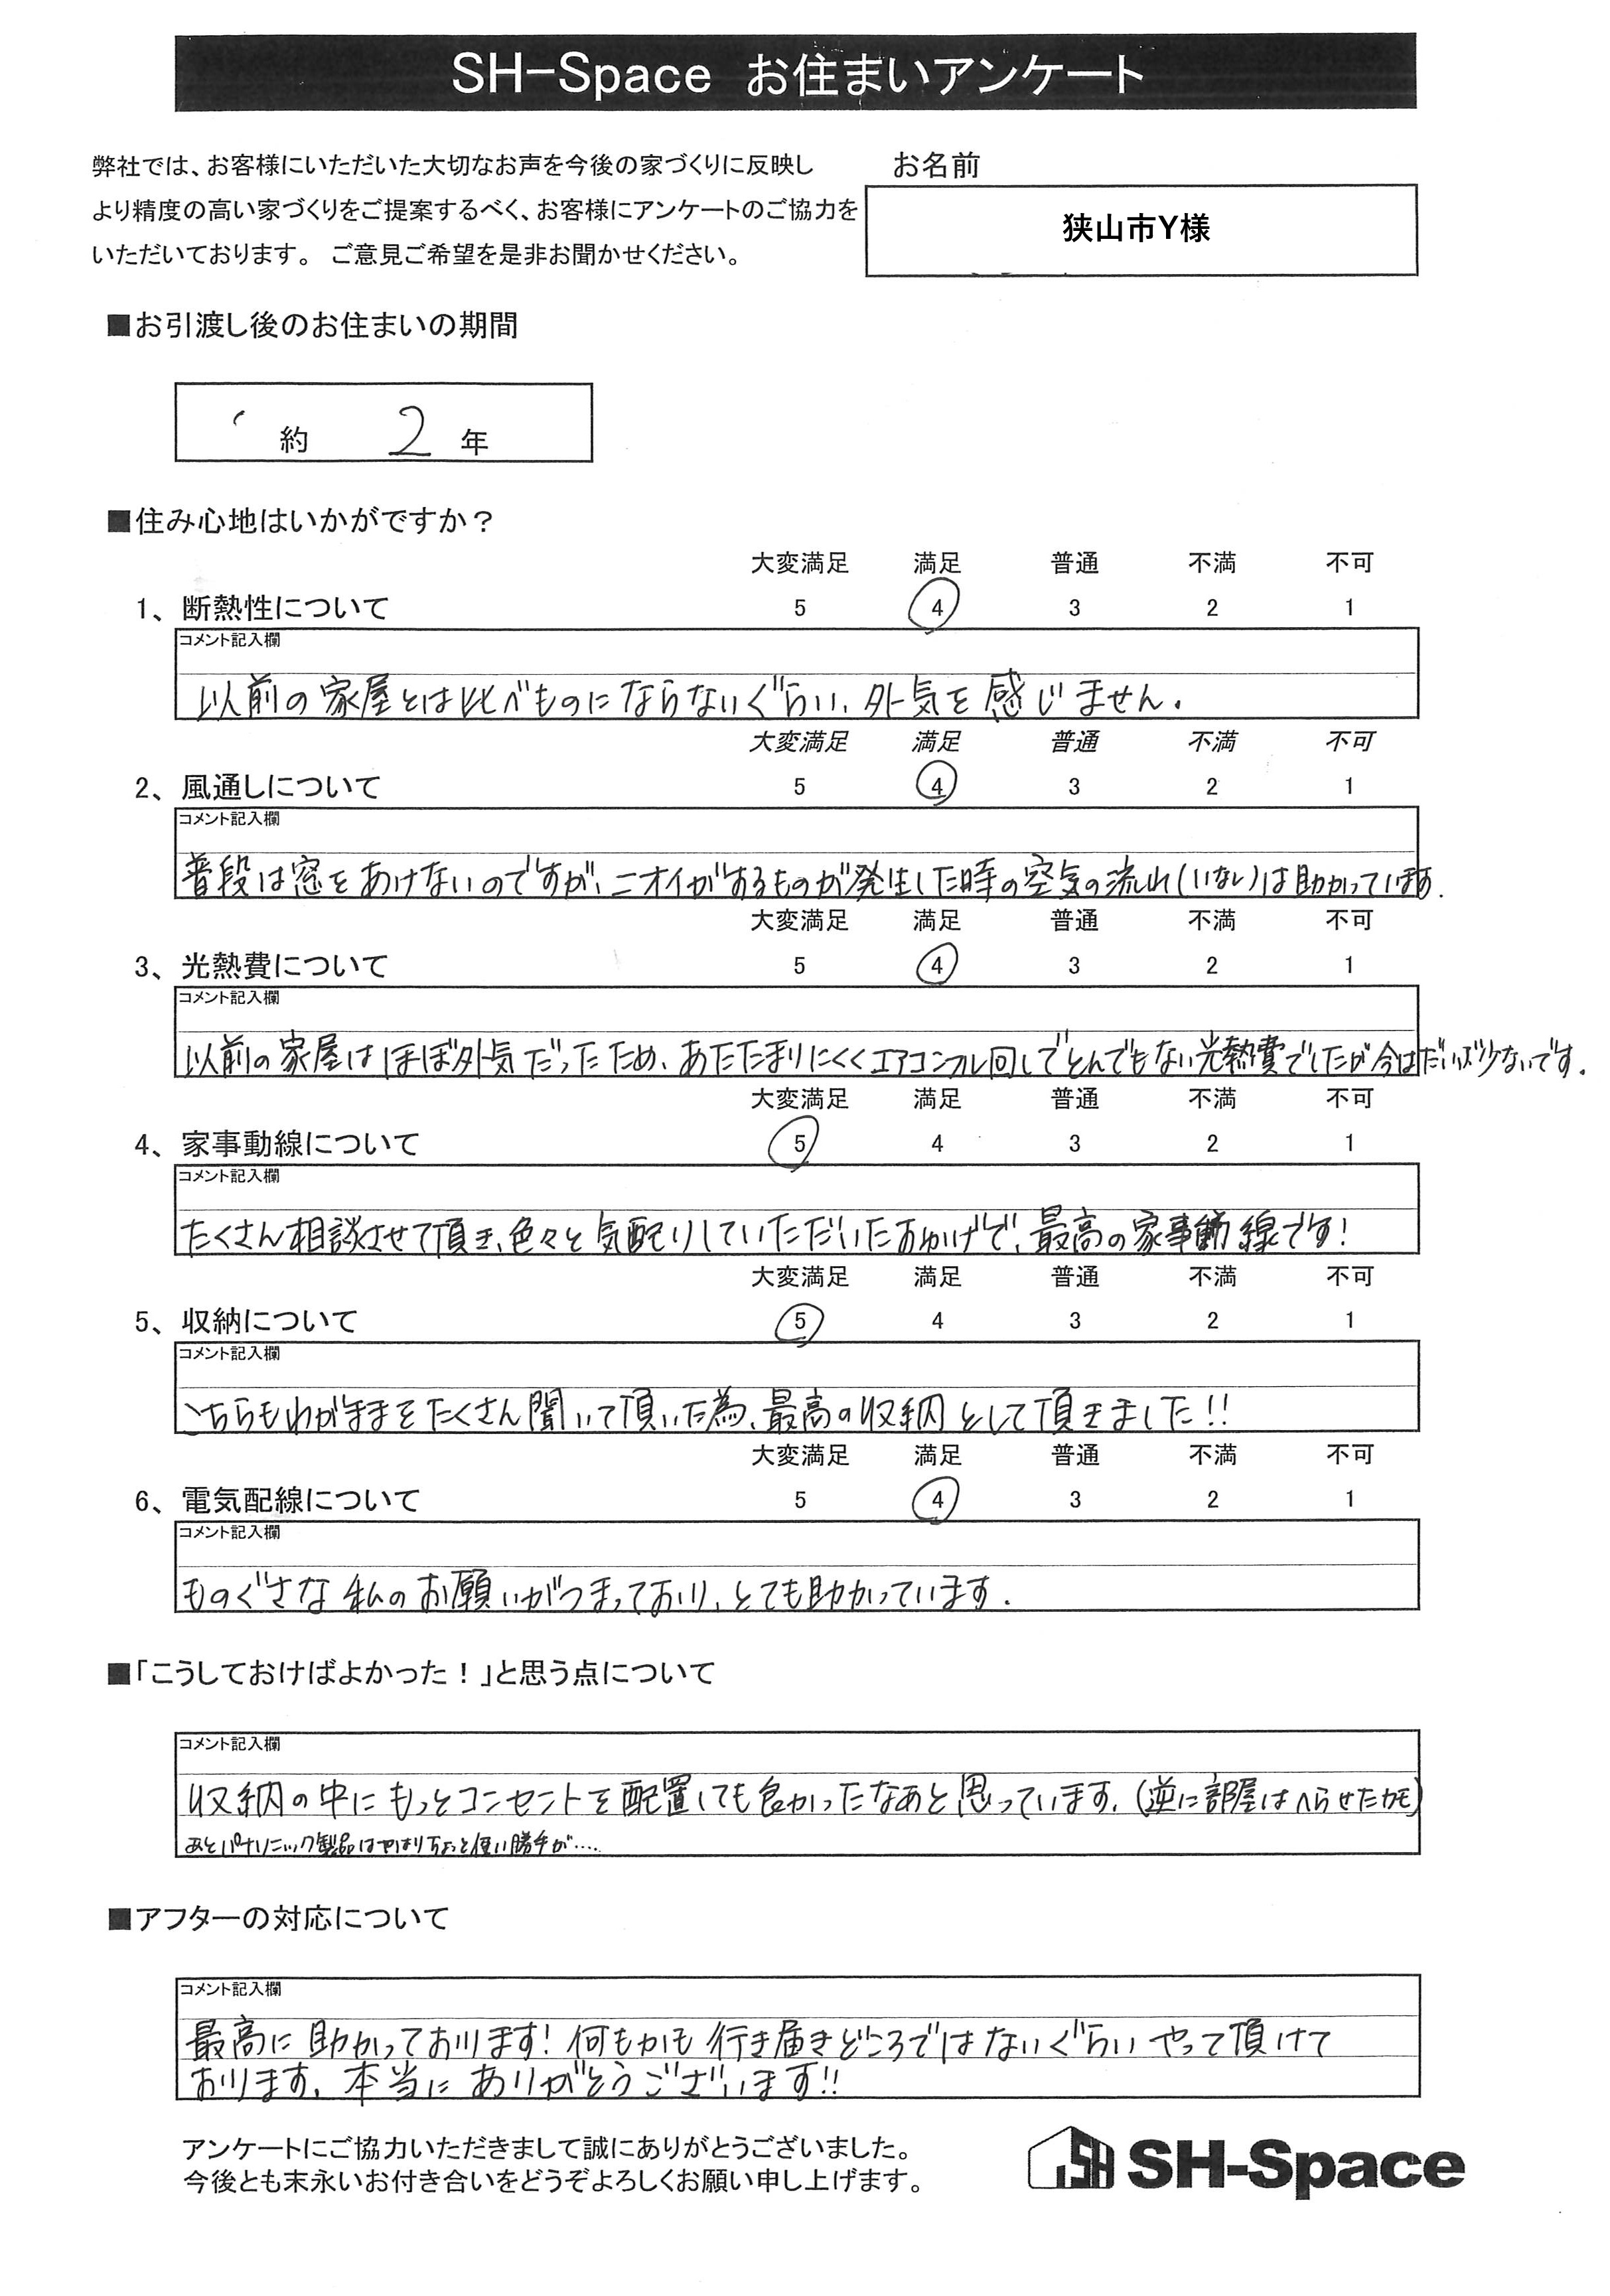 SH-Space お住まいアンケート
弊社では、お客様にいただいた大切なお声を今後の家づくりに反映し
より精度の高い家づくりをご提案するべく、お客様にアンケートのご協力を
いただいております。 ご意見ご希望を是非お聞かせください。
お名前
狭山市Y様
■お引渡し後のお住まいの期間
約 2 年
■住み心地はいかがですか？
大変満足 満足 普通 不満 不可
1、断熱性について 5 4 3 2 1
コメント記入欄
以前の家屋とは比べものにならないぐらい、外気を感じません。
大変満足 満足 普通 不満 不可
2、風通しについて 5 4 3 2 1
コメント記入欄
普段は窓をあけないのですが、ニオイがするものが発生した時の空気の流れ(いなし)は助かっています.
大変満足 満足 普通 不満 不可
3、光熱費について 5 4 3 2 1
コメント記入欄
以前の家屋はほぼ外気だったため、あたたまりにくくエアコンフル回しでとんでもない光熱費でしたが今はだいぶ少ないです.
大変満足 満足 普通 不満 不可
4、家事動線について 5 4 3 2 1
コメント記入欄
たくさん相談させて頂き、色々と気配りしていただいたおかげで、最高の家事動線です!
大変満足 満足 普通 不満 不可
5、収納について 5 4 3 2 1
コメント記入欄
こちらもわがままをたくさん聞いて頂いた為、最高の収納として頂きました!!
大変満足 満足 普通 不満 不可
6、電気配線について 5 4 3 2 1
コメント記入欄
ものぐさな私のお願いがつまっており、とても助かっています.
■「こうしておけばよかった！」と思う点について
コメント記入欄
収納の中にもっとコンセントを配置しても良かったなあと思っています.(逆に部屋はへらせたかも)
あとパナソニック製品はやはりちょっと使い勝手が.....
■アフターの対応について
コメント記入欄
最高に助かっております! 何もかも行き届きどころではないぐらいやって頂けて
おります. 本当にありがとうございます!!
アンケートにご協力いただきまして誠にありがとうございました。
今後とも末永いお付き合いをどうぞよろしくお願い申し上げます。
SH SH-Space